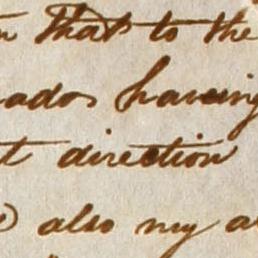 that to the
ados having
t direction
also my a